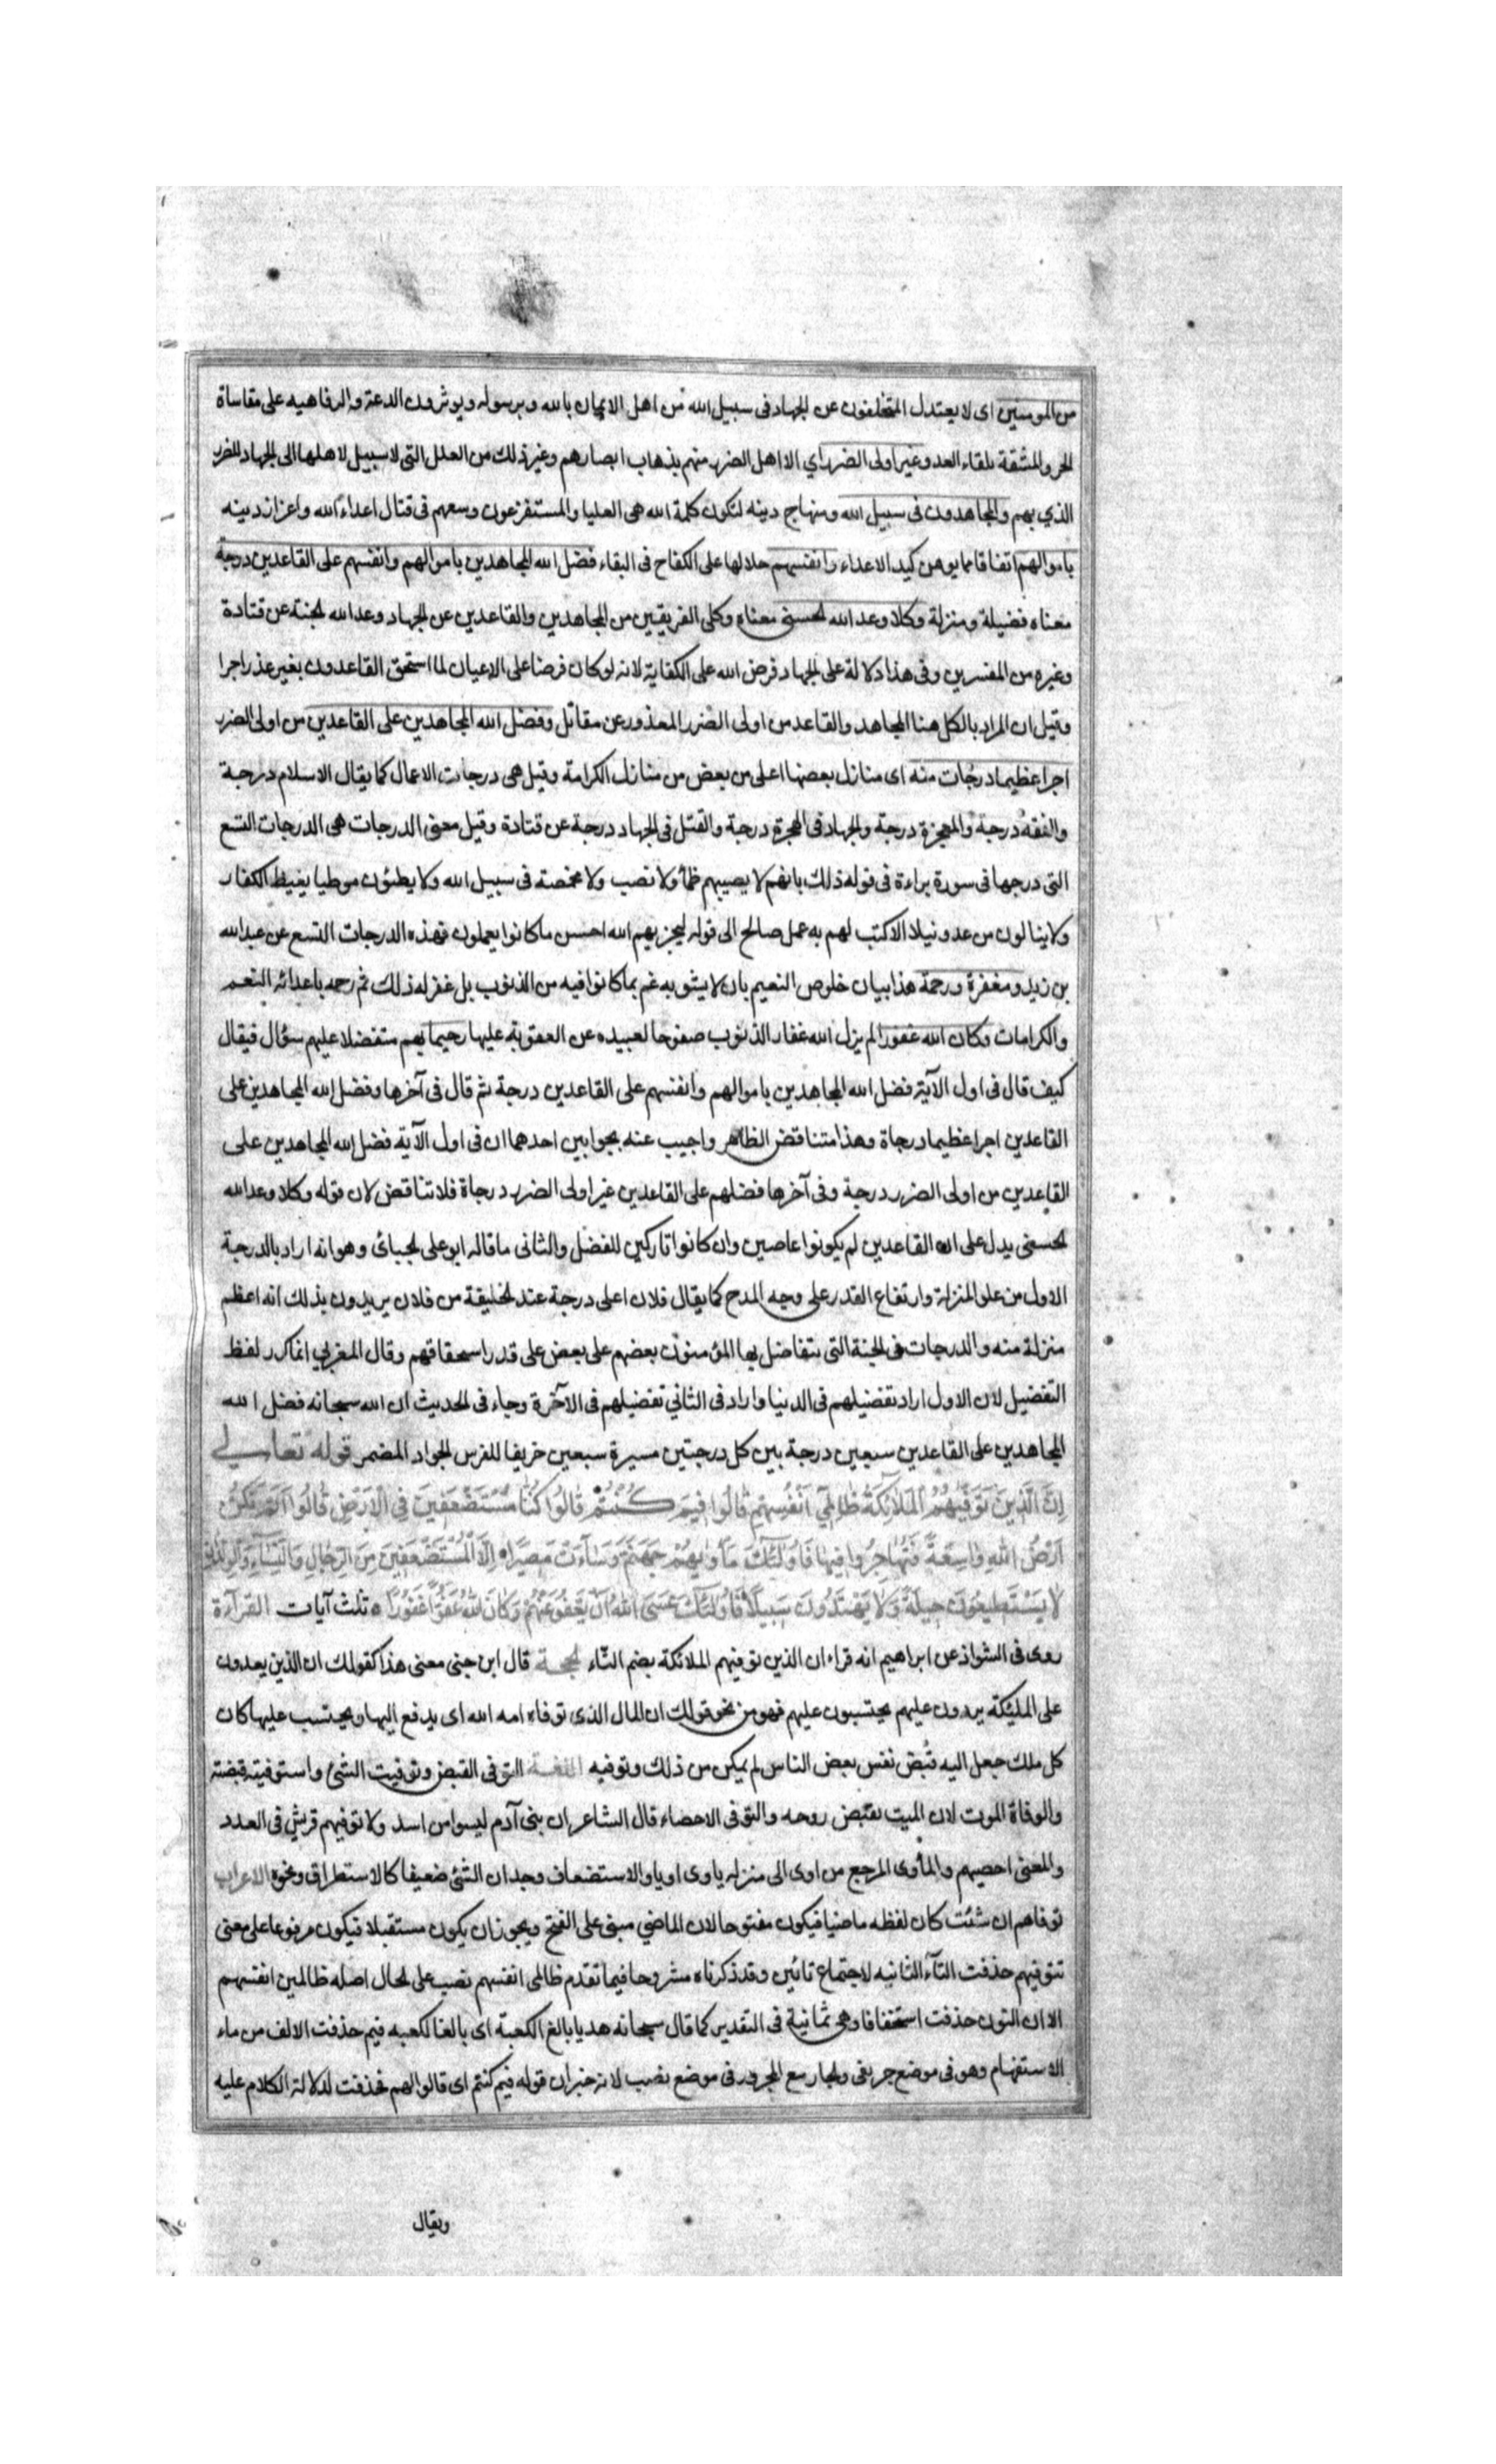 من المومنين اى لا يعتدل المتخلفون عن الجهاد فى سبيل الله من اهل الايمان بالله وبرسوله ويوثرون الدعة والرفاهيه على مقاساة
الحر والمشقة بلقاء العدو غير اولى الضرر اي الا اهل الضرر منهم بذهاب ابصارهم وغير ذلك من العلل التى لا سبيل لاهلها الى الجهاد للضرر
الذي بهم والمجاهدون فى سبيل الله ومنهاج دينه لتكون كلمة الله هى العليا والمستفرغون وسعهم فى قتال اعداء الله واعزاز دينه
باموالهم انفاقا مما يوهن كيد الاعداء وانفسهم حملا لها على الكفاح فى اللقاء فضل الله المجاهدين باموالهم وانفسهم على القاعدين درجة
معناه فضيلة ومنزلة وكلا وعد الله الحسنى معناه وكلى الفريقين من المجاهدين والقاعدين عن الجهاد وعد الله الجنة عن قتادة
وغيره من المفسرين وفى هذا دلالة على الجهاد فرض الله على الكفاية لانه لو كان فرضا على الاعيان لما استحق القاعدون بغير عذر اجرا
وقيل ان المراد بالكل هنا المجاهد والقاعد من اولى الضرر المعذور عن مقاتل وفضل الله المجاهدين على القاعدين من اولى الضرر
اجرا عظيما درجات منه اى منازل بعضها اعلى من بعض من منازل الكرامة وقيل هى درجات الاعمال كما يقال الاسلام درجة
والفقه درجة والهجرة درجة والجهاد فى الهجرة درجة والقتل فى الجهاد درجة عن قتادة وقيل معنى الدرجات هى الدرجات التسع
التى درجها فى سورة براءة فى قوله ذلك بانهم لا يصيبهم ظمأ ولا نصب ولا مخمصة فى سبيل الله ولا يطئون موطيا يغيظ الكفار
ولا ينالون من عدو نيلا الا كتب لهم به عمل صالح الى قوله ليجزيهم الله احسن ما كانوا يعملون فهذه الدرجات التسع عن عبد الله
بن زيد ومغفرة ورحمة هذا بيان خلوص النعيم بان لا يشوبه غم بما كانوا فيه من الذنوب بل غفر له ذلك ثم رحمه باعدائه النعم
والكرامات وكان الله غفورا لم يزل الله غفار الذنوب صفوحا لعبيده عن العقوبة عليها رحيما بهم متفضلا عليهم سؤال فيقال
كيف قال فى اول الآية فضل الله المجاهدين باموالهم وانفسهم على القاعدين درجة ثم قال فى آخرها وفضل الله المجاهدين على
القاعدين اجرا عظيما درجاة وهذا متناقض الظاهر واجيب عنه بجوابين احدهما ان فى اول الآية فضل الله المجاهدين على
القاعدين من اولى الضرر درجة وفى آخرها فضلهم على القاعدين غير اولى الضرر درجاة فلا تناقض لان قوله وكلا وعد الله
الحسنى يدل على ان القاعدين لم يكونوا عاصين وان كانوا تاركين للفضل والثانى ما قاله ابو على الجبائى وهو انه اراد بالدرجة
الاول من علو المنزلة وارتفاع القدر على وجه المدح كما يقال فلان اعلى درجة عند الخليقة من فلان يريدون بذلك انه اعظم
منزلة منه والدرجات فى الجنة التى يتفاضل بها المؤمنون بعضهم على بعض على قدر استحقاقهم وقال المغربي انما كرر لفظ
التفضيل لان الاول اراد تفضيلهم فى الدنيا واراد فى الثاني تفضيلهم فى الآخرة وجاء فى الحديث ان الله سبحانه فضل الله
المجاهدين على القاعدين سبعين درجة بين كل درجتين مسيرة سبعين خريفا للفرس الجواد المضمر قوله تعالى
اِنَّ الَّذِينَ تَوَفّٰيهُمُ الْمَلَائِكَةُ ظَالِمِي اَنْفُسِهِمْ قَالُوا فِيمَ كُنْتُمْ قَالُوا كُنَّا مُسْتَضْعَفِينَ فِى الْاَرْضِ قَالُوا اَلَمْ تَكُنْ
اَرْضُ اللهِ وَاسِعَةً فَتُهَاجِرُوا فِيهَا فَاُولٰئِكَ مَأْوٰيهُمْ جَهَنَّمُ وَسَاءَتْ مَصِيرًا اِلَّا الْمُسْتَضْعَفِينَ مِنَ الرِّجَالِ وَالنِّسَاءِ وَالْوِلْدَانِ
لَا يَسْتَطِيعُونَ حِيلَةً وَلَا يَهْتَدُونَ سَبِيلًا فَاُولٰئِكَ عَسَى اللهُ اَنْ يَعْفُوَ عَنْهُمْ وَكَانَ اللهُ عَفُوًّا غَفُورًا ثلث آيات القرآءة
روى فى الشواذ عن ابراهيم انه قراء ان الذين توفيهم الملائكة بضم التّاء الحجة قال ابن جنى معنى هذا كقولك ان الذين يعدون
على المليكة يردون عليهم يحتسبون عليهم فهو من نحو قولك ان المال الذى توفاه امه الله اى يدفع اليها ويحتسب عليها كان
كل ملك جعل اليه قبض نفس بعض الناس لم يمكن من ذلك وتوفيه اللغة التوفى القبض وتوفيت الشئ واستوفيته قبضته
والوفاة الموت لان الميت تقبض روحه والتوفى الاحصاء قال الشاعر ان بنى آدم ليسوا من اسد ولا توفيهم قريش فى العدد
والمعنى احصيهم والمأوى المرجع من اوى الى منزله ياوى اويا والاستضعاف وجدان الشئ ضعيفا كالاستطراق ونحوه الاعراب
توفاهم ان شئت كان لفظه ماضيا فيكون مفتوحا لان الماضي مبنى على الفتح ويجوز ان يكون مستقبلا فيكون مرفوعا على معنى
تتوفيهم حذفت التآء الثانيه لاجتماع تائين وقد ذكرناه مشروحا فيما تقدم ظالمى انفسهم نصب على الحال اصله ظالمين انفسهم
الا ان النون حذفت استخفافا وهى ثمانية فى التقدير كما قال سبحانه هديا بالغ الكعبة اى بالغا الكعبه فيم حذفت الالف من ماء
الاستفهام وهو فى موضع جر بفى والجار مع المجرور فى موضع نصب لانه خبر ان قوله فيم كنتم اى قالوا لهم فحذفت لدلالة الكلام عليه
ويقال